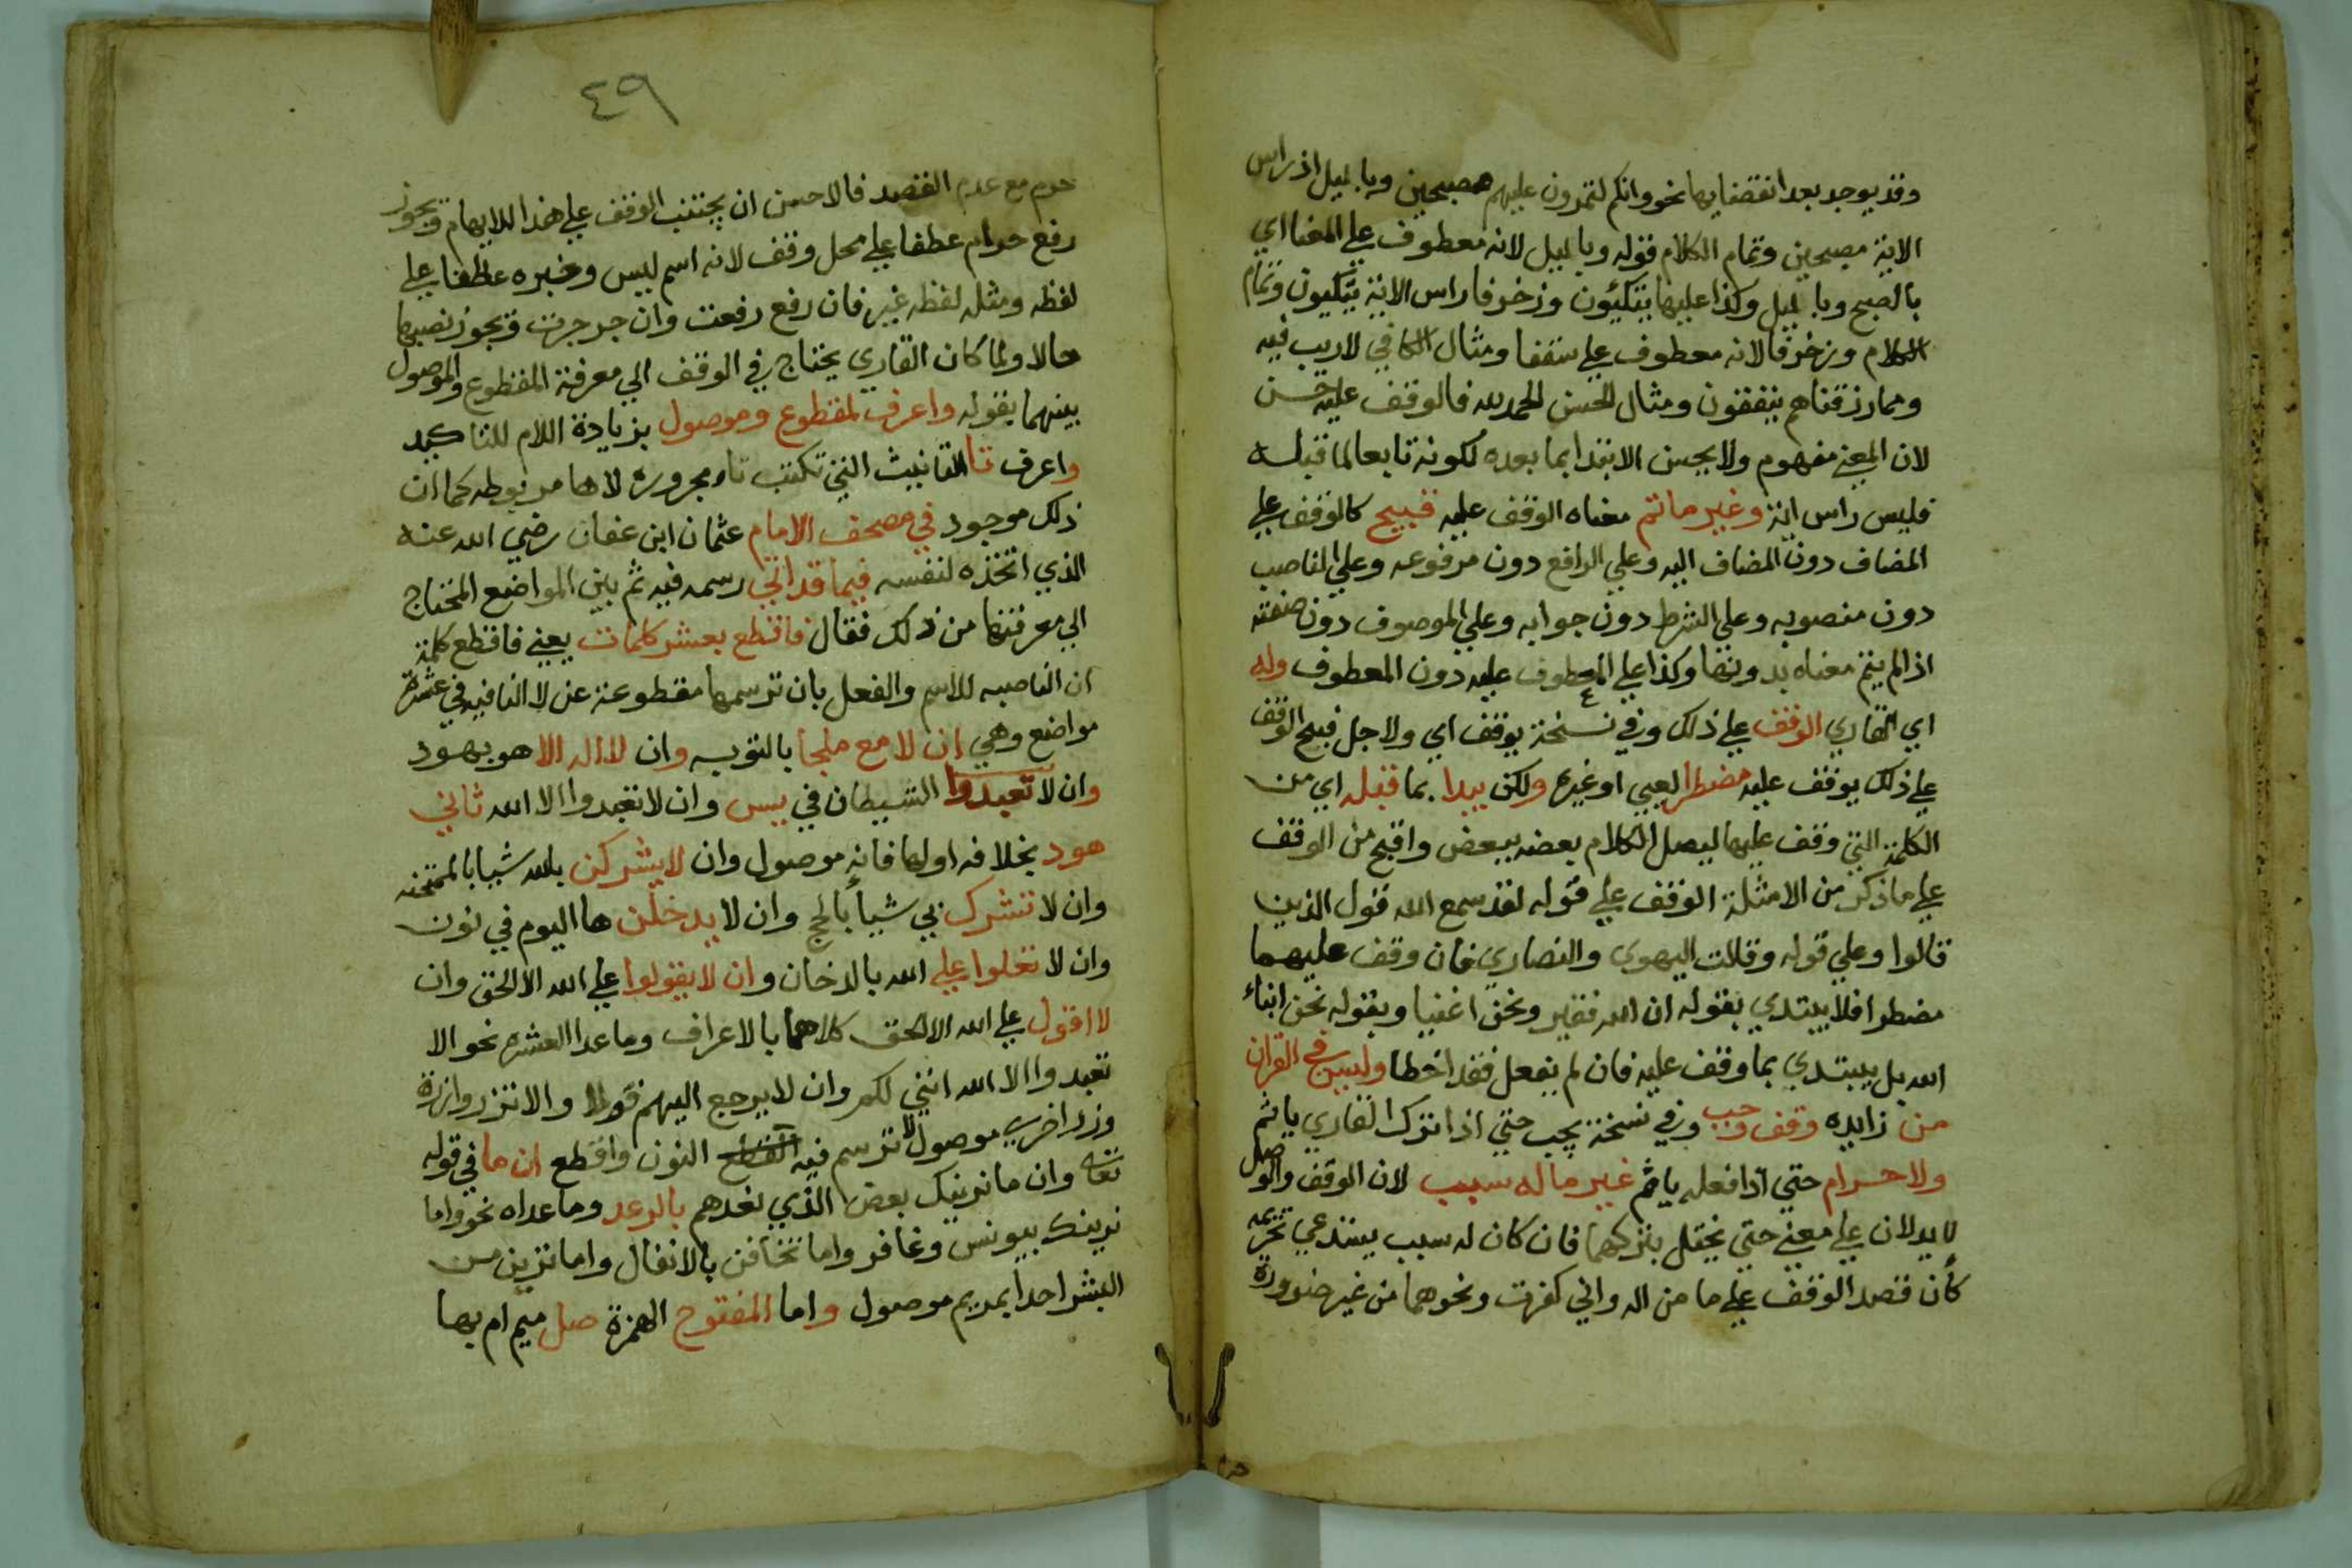 وقد يوجد بعد انقضايها نحو وانكم لتمرون عليهم مصبحين وبالليل اذ راس
الاية مصبحين وتمام الكلام قوله وبالليل لانه معطوف علي المعنا اي
بالصبح وبالليل وكذا عليها يتكيئون وزخرفا راس الاية يتكيون وتمام
الكلام وزخرفا لانه معطوف علي سقفا ومثال الكافي لاريب فيه
ومما رزقناهم ينفقون ومثال الحسن الحمد لله فالوقف عليه حسن
لان المعني مفهوم ولا يحسن الابتدا بما بعده لكونه تابعا لما قبله
فليس راس اية وغير ما تم معناه الوقف عليه قبيح كالوقف علي
المضاف دون المضاف اليه وعلي الرافع دون مرفوعه وعلي الناصب
دون منصوبه وعلي الشرط دون جوابه وعلي الموصوف دون صفته
اذا لم يتم معناه بدونها وكذا علي المعطوف عليه دون المعطوف وله
اي القاري الوقف علي ذلك وفي نسخة يوقف اي ولاجل قبح الوقف
علي ذلك يوقف عليه مضطرا لعيي او غيره ولكن يبدا بما قبله اي من
الكلمة التي وقف عليها ليصل الكلام بعضه ببعض واقبح من الوقف
علي ما ذكر من الامثلة الوقف علي قوله لقد سمع الله قول الذين
قالوا وعلي قوله وقالت اليهود والنصاري فان وقف عليهما
مضطرا فلا يبتدي بقوله ان الله فقير ونحن اغنيا وبقوله نحن ابناء
الله بل يبتدي بما وقف عليه فان لم يفعل فقد اخطا وليس في القران
من زايده وقف وجب وفي نسخة يجب حتي اذا ترك القاري ياثم
ولا حرام حتي اذا فعله ياثم غير ما له سبب لان الوقف والوصل
لا يدلان علي معني حتي يختل بتركهما فان كان له سبب يستدعي تحريمه
كأن قصد الوقف علي ما من اله واني كفرت ونحوهما من غير ضرورة
حرم
٤٩
حرم مع عدم القصد فالاحسن ان يجتنب الوقف علي هذا للايهام ويجوز
رفع حرام عطفا علي محل وقف لانه اسم ليس وغيره عطفا علي
لفظه ومثله لفظه غير فان رفع رفعت وان جر جرت ويجوز نصبها
حالا ولما كان القاري يحتاج في الوقف الي معرفة المقطوع والموصول
بينهما بقوله واعرف لمقطوع وموصول بزيادة اللام للتاكيد
واعرف تا التانيث التي تكتب تاء مجرورة لاها مربوطه كما ان
ذلك موجود في مصحف الامام عثمان ابن عفان رضي الله عنه
الذي اتخذه لنفسه فيما قد اتي رسمه فيه ثم بين المواضع المحتاج
الي معرفتها من ذلك فقال فاقطع بعشر كلمات يعني فاقطع كلمة
ان الناصبه للاسم والفعل بان ترسمها مقطوعة عن لا النافيه في عشرة
مواضع وهي ان لا مع ملجا بالتوبه وان لا اله الا هو بهود
وان لا تعبدوا الشيطان في يس وان لا تعبدوا الا الله ثاني
هود بخلافه اولها فانه موصول وان لا يشركن بالله شيا بالممتحنه
وان لا تشرك بي شيأ بالحج وان لا يدخلن ها اليوم في نون
وان لا تعلوا علي الله بالدخان وان لا يقولوا علي الله الا الحق وان
لا اقول علي الله الا الحق كلاهما بالاعراف وما عدا العشرة نحو الا
تعبدوا الا الله انني لكم وان لا يرجع اليهم قولا والا تزر وازرة
وزر اخري موصول لا ترسم فيه النون واقطع ان ما في قوله
تعالي وان ما نرينك بعض الذي نعدهم بالرعد وما عداه نحو واما
نرينك بيونس وغافر واما تخافن بالانفال واما ترين من
البشر احدا بمريم موصول واما المفتوح الهمزة صل ميم ام بها